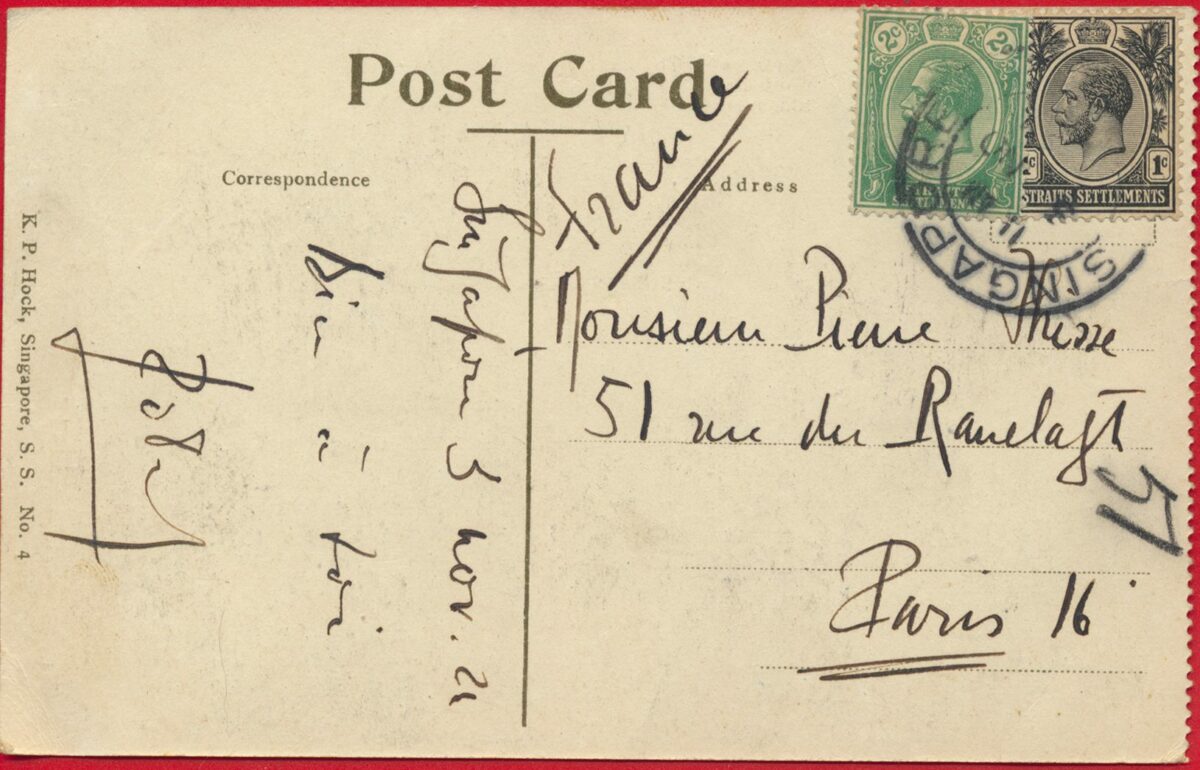 Post Card
Correspondence
Address
France
Monsieur Pierre
51 rue du Ranelagh
Paris 16
51
Singapour 5 nov. 21
Bien à toi
K. P. Hock, Singapore, S. S. No. 4
2c 2c
STRAITS
SETTLEMENTS
1c
STRAITS SETTLEMENTS
SINGAPORE